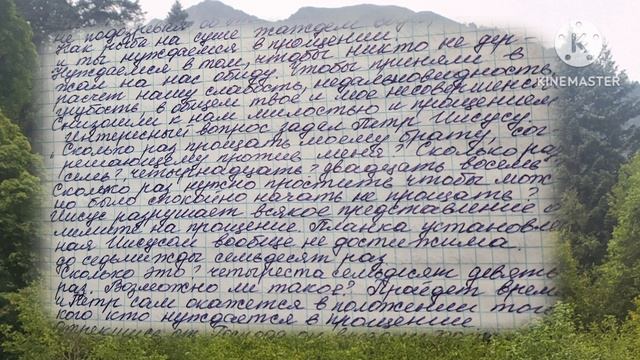 не подозревая об
как рыба на суше жаждем
и ты нуждаемся в прощении.
Нуждаемся в том, чтобы никто не дер-
жал на нас обиду. Чтобы приняли в
расчет нашу слабость, недальновидность,
грубость, в общем твое и мое несовершенс
с к нам милостью и прощением
Интересный вопрос задал Петр Иисусу.
Сколько раз прощать моему брату, сог
решающему против меня? Сколько раз
Семь? четырнадцать? двадцать восемь
Сколько раз нужно простить чтобы мож
но было спокойно начать не прощать?
Иисус разрушает всякое представление о
лимите на прощение. Планка установлен
ная Иисусом вообще не достижима.
до седмижды семьдесят раз
Сколько это? четыреста семьдесят девять
раз. Возможно ли такое? Пройдет время
и Петр сам окажется в положении того
кого кто нуждается в прощении
отрекшись от
KINEMASTER